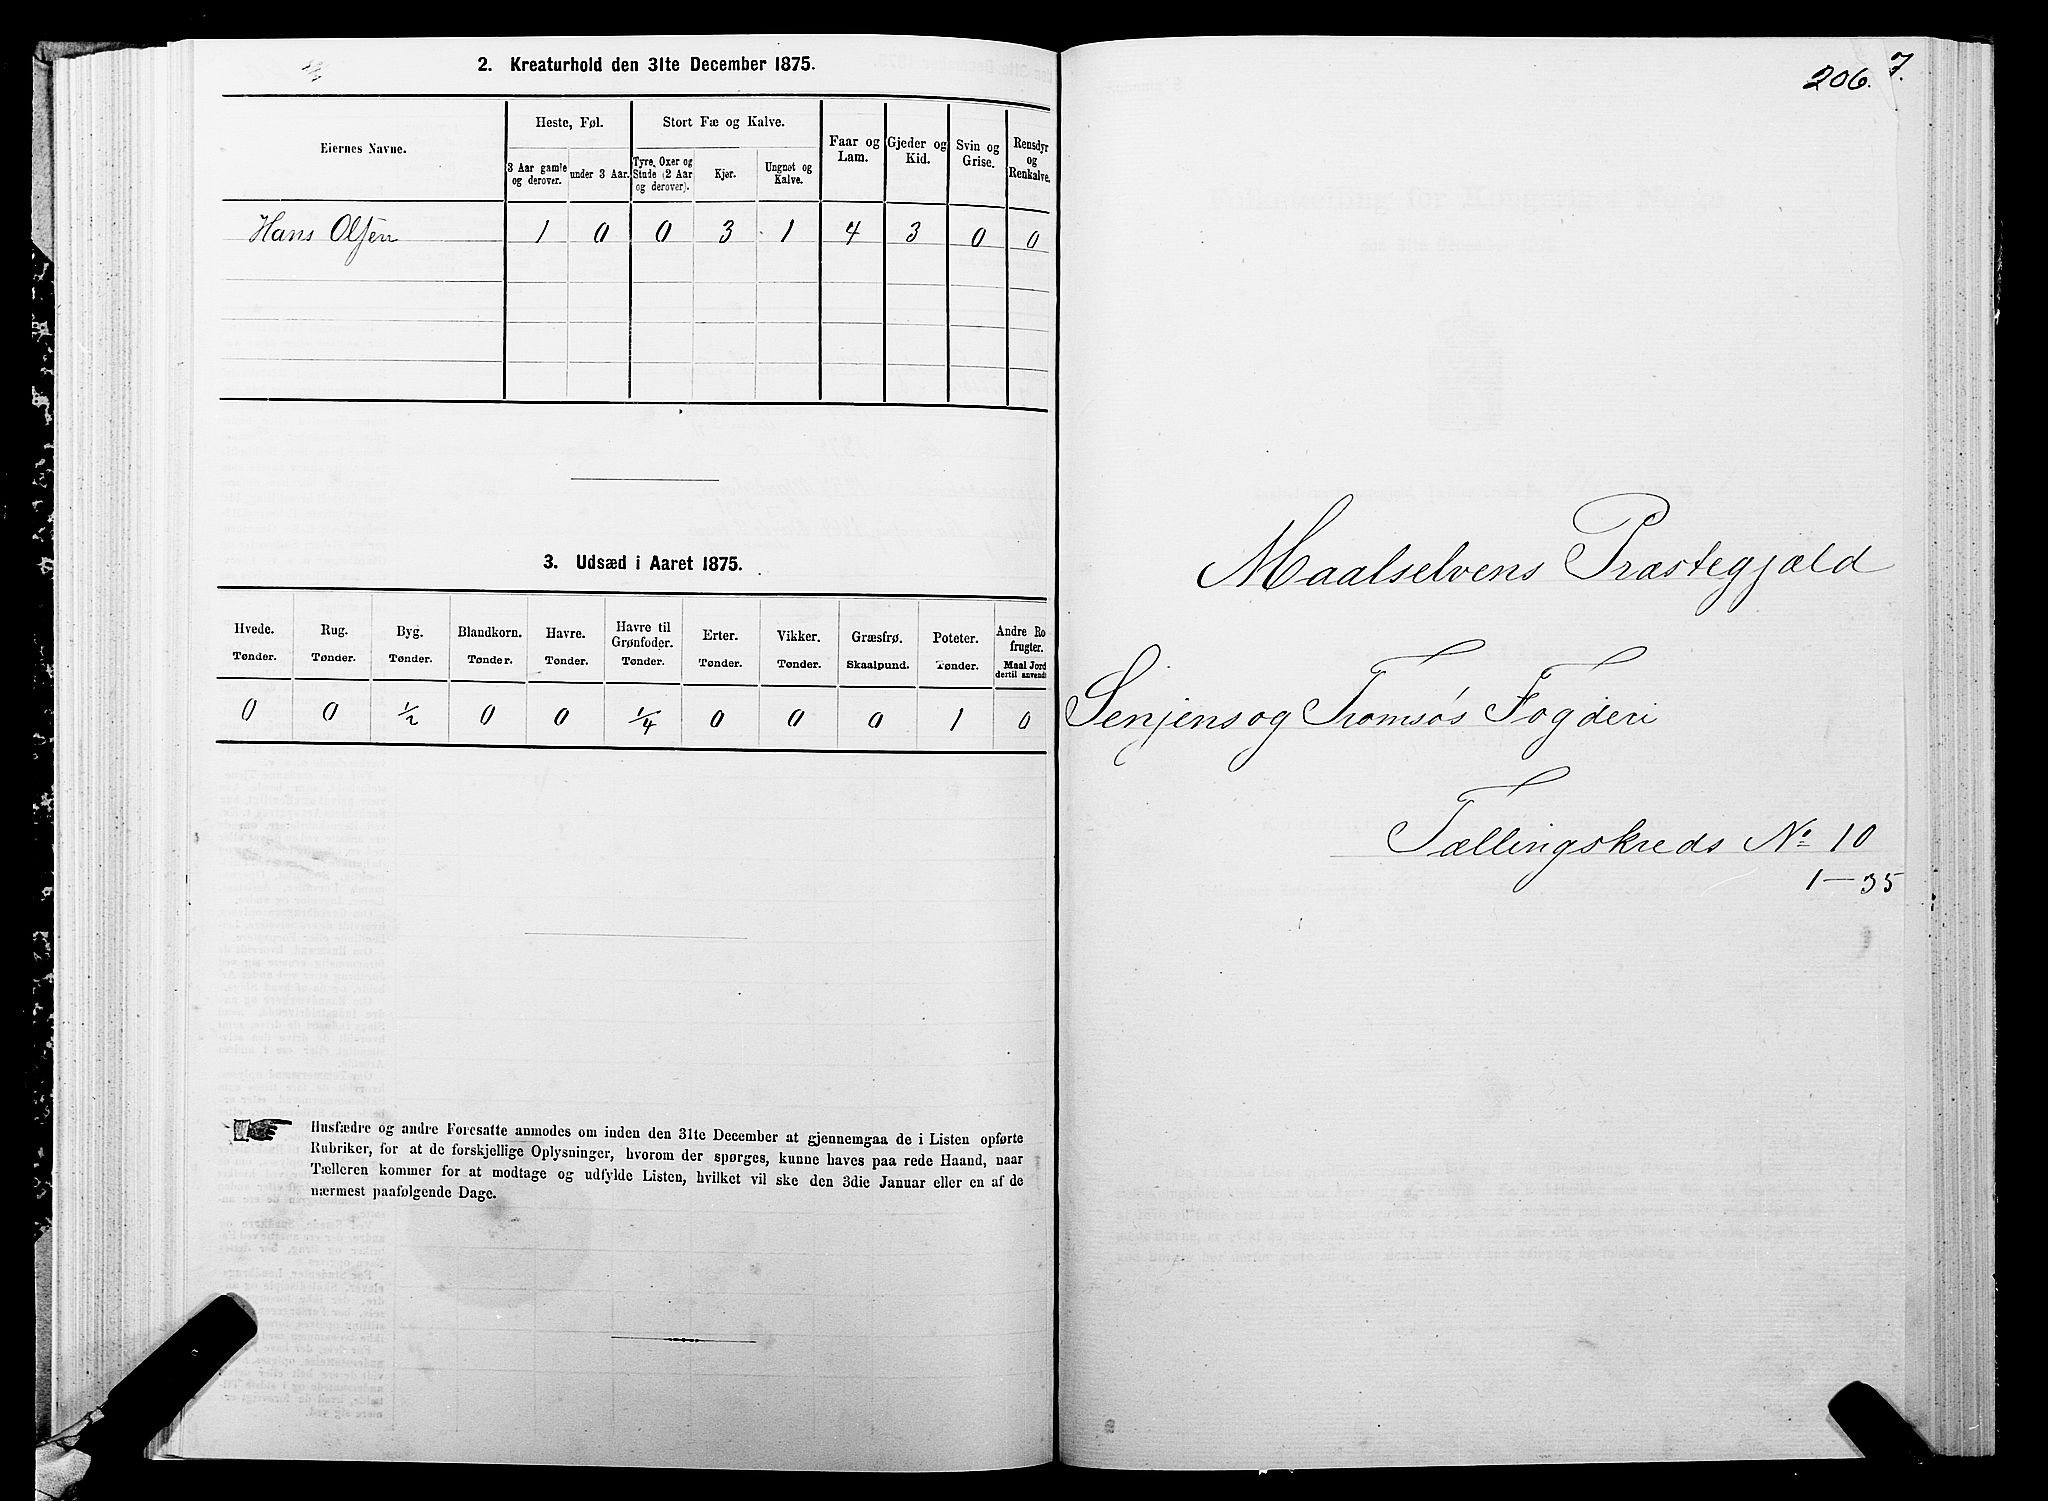 2. Kreaturhold den 31te December 1875.
Eiernes Navne.
Heste, Føl.
3 Aar gamle og derover.
under 3 Aar.
Stort Fæ og Kalve.
Tyre, Oxer og Stude (2 Aar og derover).
Kjør.
Ungnøt og Kalve.
Faar og Lam.
Gjeder og Kid.
Svin og Grise.
Rensdyr og Renkalve.
Hans Olsen 1 0 0 3 1 4 3 0 0
3. Udsæd i Aaret 1875.
Hvede. Rug. Byg. Blandkorn. Havre. Havre til Grønfoder. Erter. Vikker. Græsfrø. Poteter. Andre Ro frugter.
Tønder. Tønder. Tønder. Tønder. Tønder. Tønder. Tønder. Tønder. Skaalpund. Tønder. Maal Jord dertil anvendt
0 0 1/2 0 0 1/4 0 0 0 1 0
Husfædre og andre Foresatte anmodes om inden den 31te December at gjennemgaa de i Listen opførte
Rubriker, for at de forskjellige Oplysninger, hvorom der spørges, kunne haves paa rede Haand, naar
Tælleren kommer for at modtage og udfylde Listen, hvilket vil ske den 3die Januar eller en af de
nærmest paafølgende Dage.
206. 7.
Maalselvens Præstegjæld
Senjens og Tromsøs Fogderi
Tællingskreds No 10
1-35